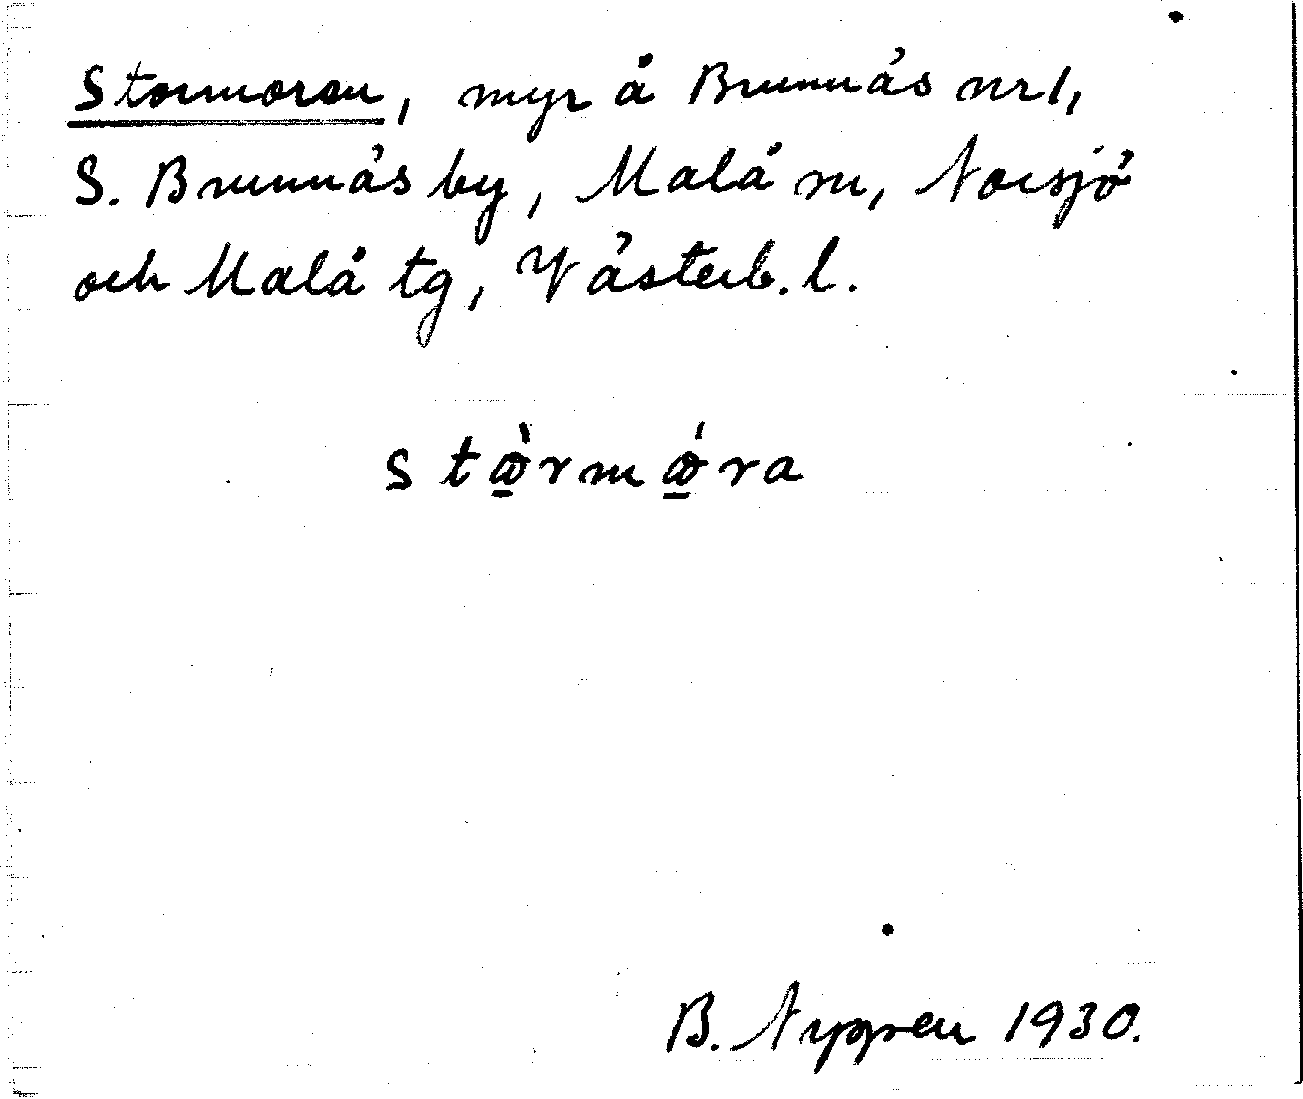 Stormoran, myr å Brunnäs nr 1,
S. Brunnäs by, Malå sn, Norsjö
och Malå tg, Västerb. l.
stὼ̱rmώ̱ra
B. Nygren 1930.